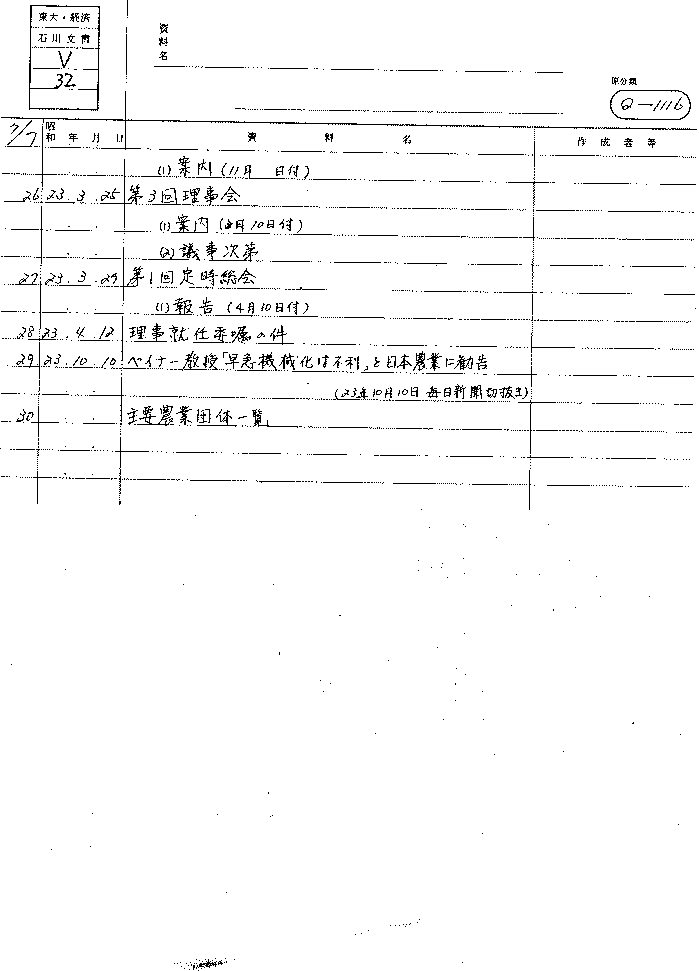 東大・経済
石川文書
V
32
資料名
原分類
Q-1116
7/7 昭和 年 月 日 資料名 作成者等
(1) 案内 (11月 日付)
26 23.3.25 第3回理事会
(1) 案内 (3月10日付)
(2) 議事次第
27 23.3.29 第1回定時総会
(1) 報告 (4月10日付)
28 23.4.12 理事就任委嘱の件
29 23.10.10 ペイナー教授「早急機械化は不利」と日本農業に勧告
(23年10月10日 毎日新聞切抜き)
30 主要農業団体一覧